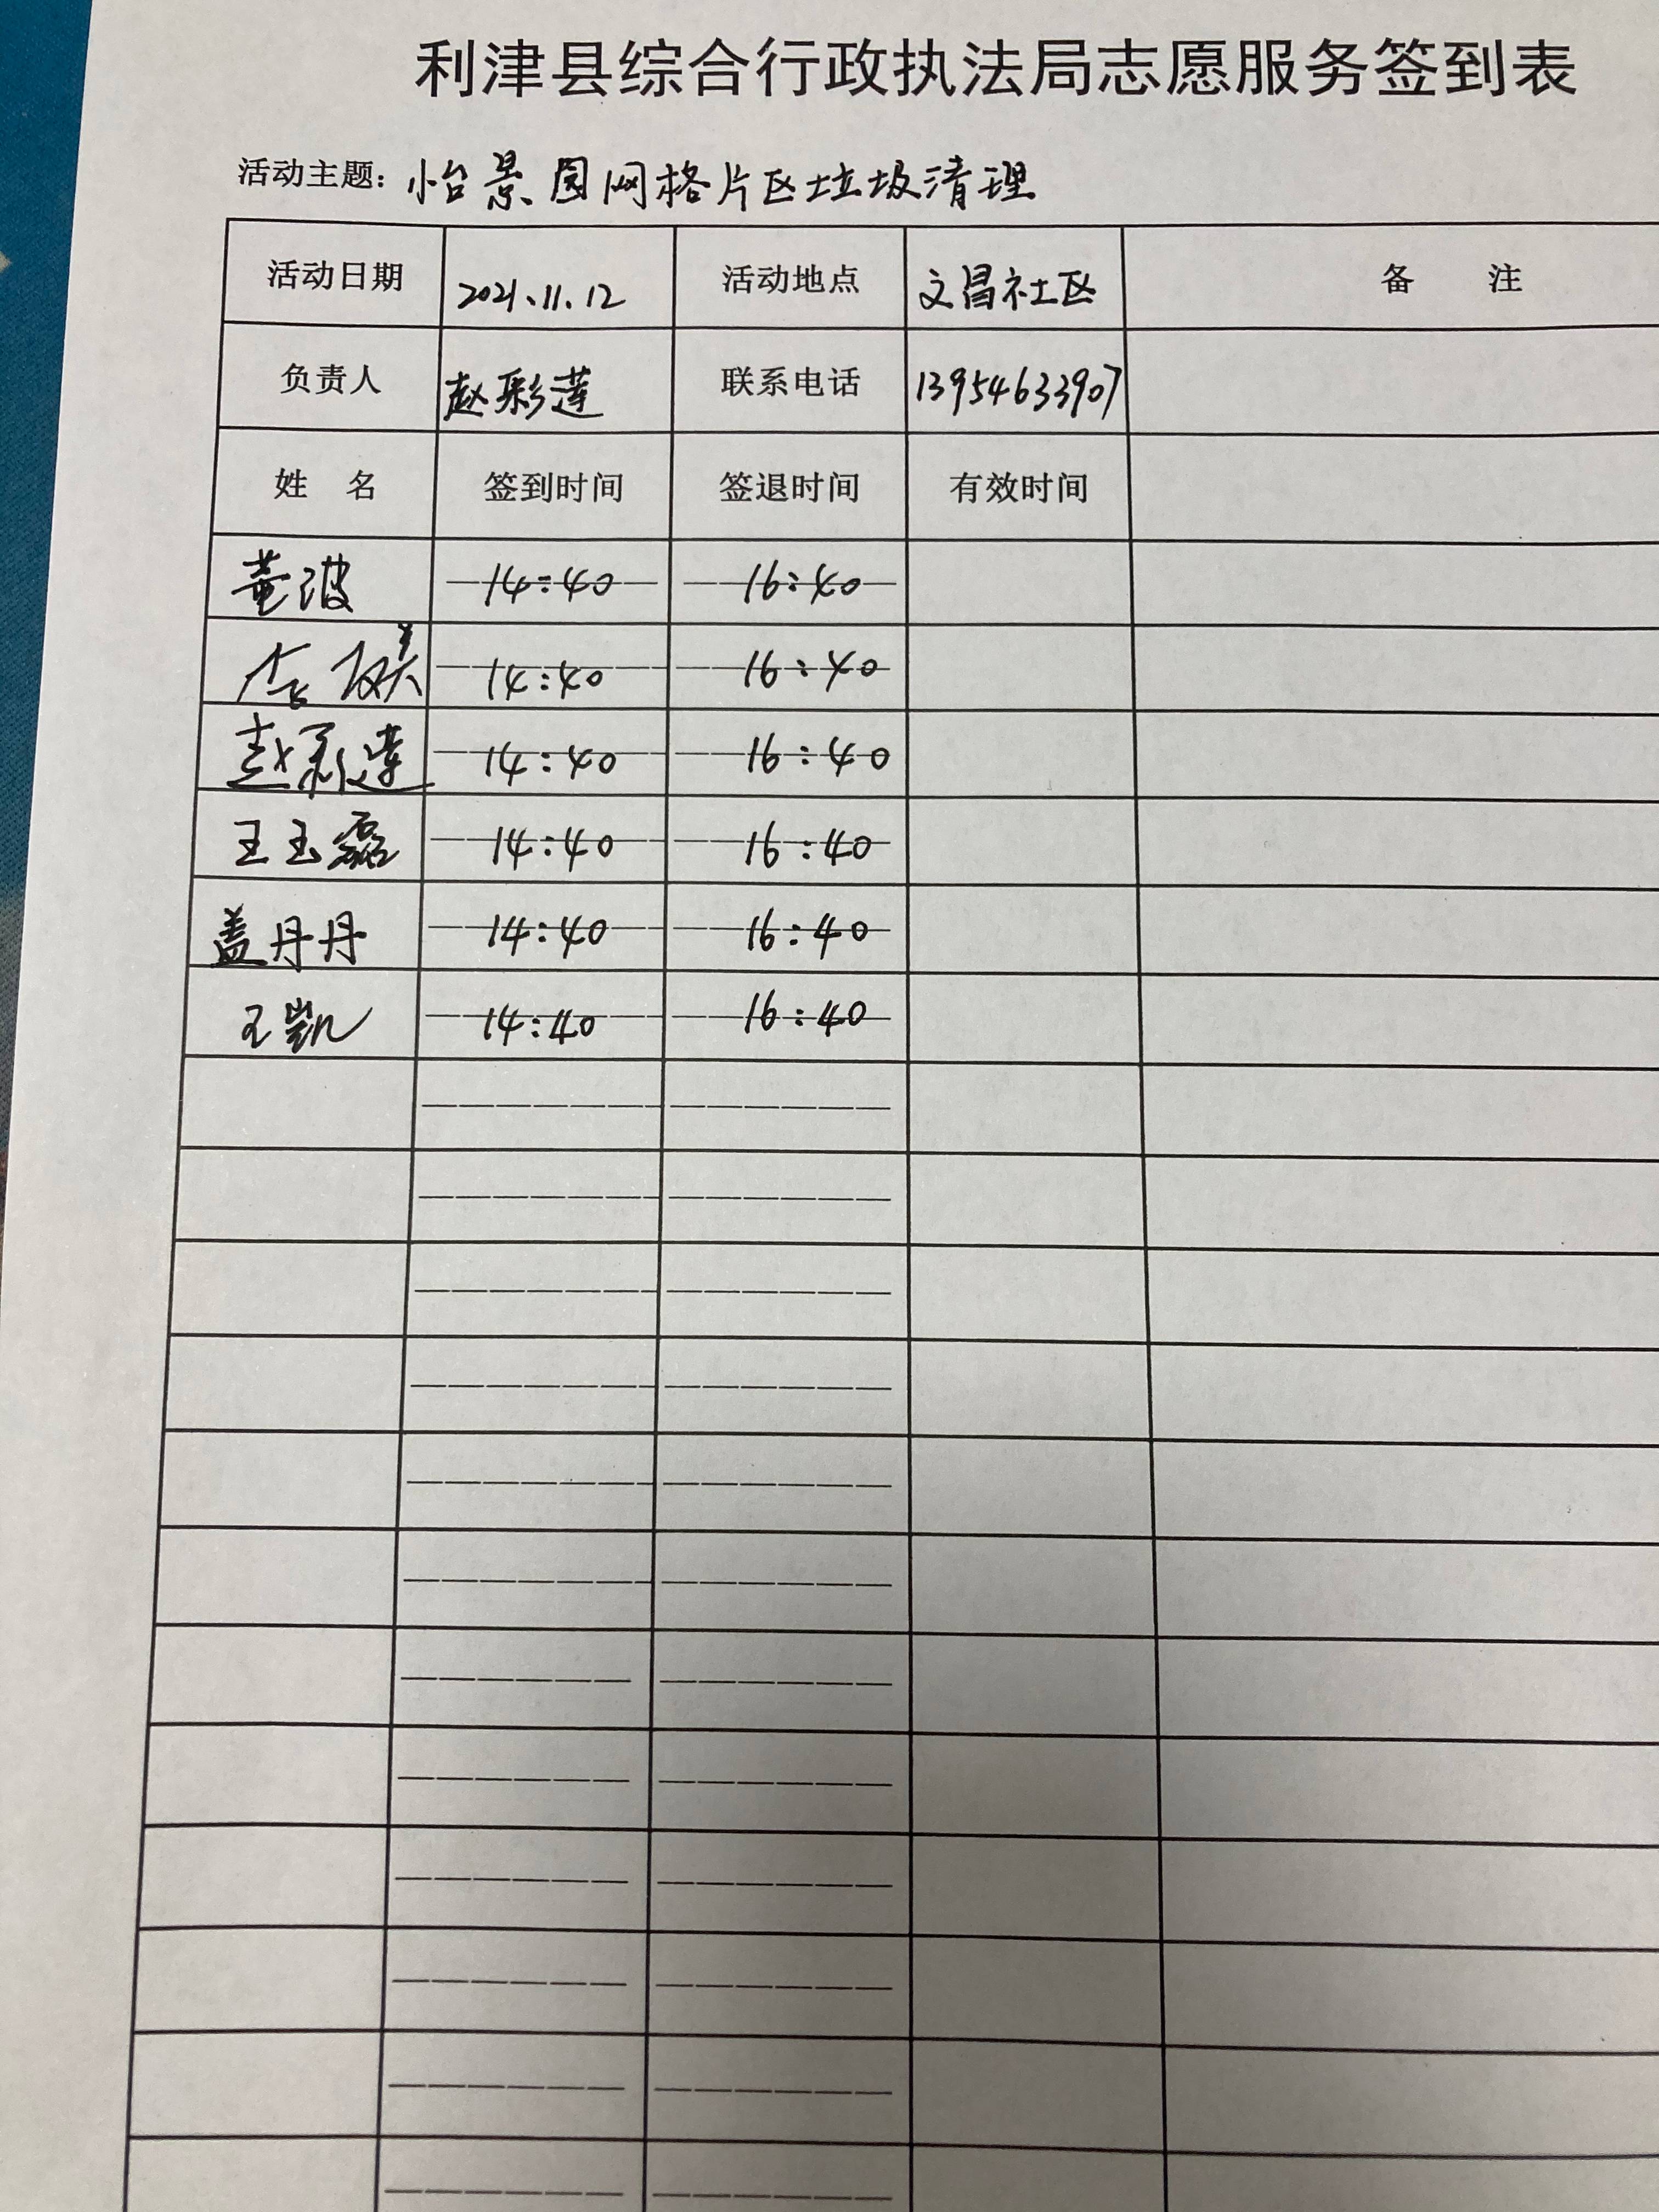 利津县综合行政执法局志愿服务签到表
活动主题：怡景园网格片区垃圾清理
活动日期 2021.11.12 活动地点 文昌社区 备 注
负责人 赵彩莲 联系电话 13954633907
姓 名 签到时间 签退时间 有效时间
董波 14:40 16:40
14:40 16:40
赵彩莲 14:40 16:40
王玉磊 14:40 16:40
盖丹丹 14:40 16:40
王凯 14:40 16:40